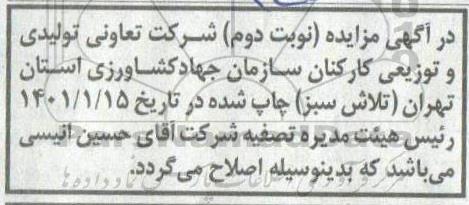 در آگهی مزایده (نوبت دوم) شرکت تعاونی تولیدی
و توزیعی کارکنان سازمان جهادکشاورزی استان
تهران (تلاش سبز) چاپ شده در تاریخ ۱۴۰۱/۱/۱۵
رئیس هیئت مدیره تصفیه شرکت آقای حسین انیسی
می‌باشد که بدینوسیله اصلاح می‌گردد.